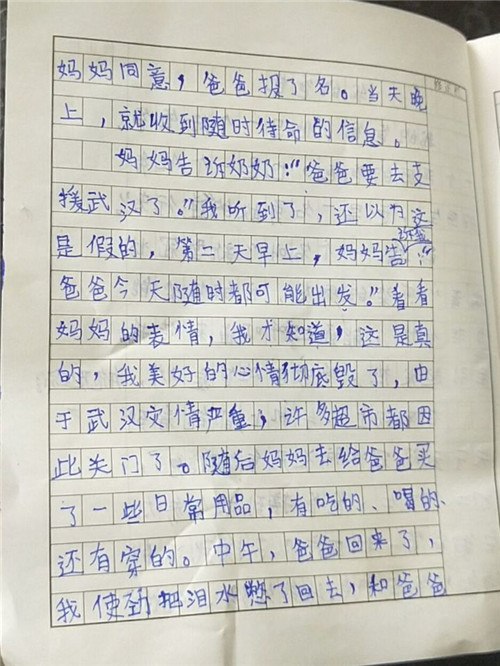 妈妈同意，爸爸报了名。当天晚
上，就收到随时待命的信息。
妈妈告诉奶奶：“爸爸要去支
援武汉了。”我听到了，还以为这
是假的，第二天早上，妈妈告诉我：“
爸爸今天随时都可能出发。”看着
妈妈的表情，我才知道，这是真
的，我美好的心情彻底毁了，由
于武汉灾情严重，许多超市都因
此关门了。随后妈妈去给爸爸买
了一些日常用品，有吃的、喝的、
还有穿的。中午，爸爸回来了，
我使劲把泪水憋了回去，和爸爸